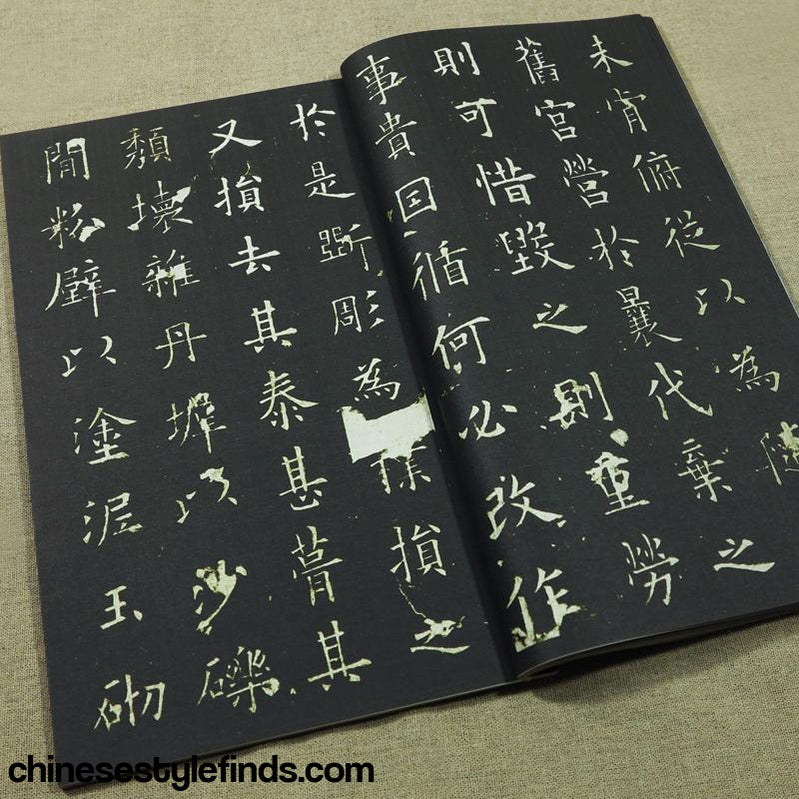 未肯俯從以為隨
舊宮營於曩代棄之
則可惜毀之則重勞
事貴因循何必改作
於是斲彫為樸損之
又損去其泰甚葺其
頹壞雜丹墀以沙礫
間粉壁以塗泥玉砌
chinesestylefinds.com